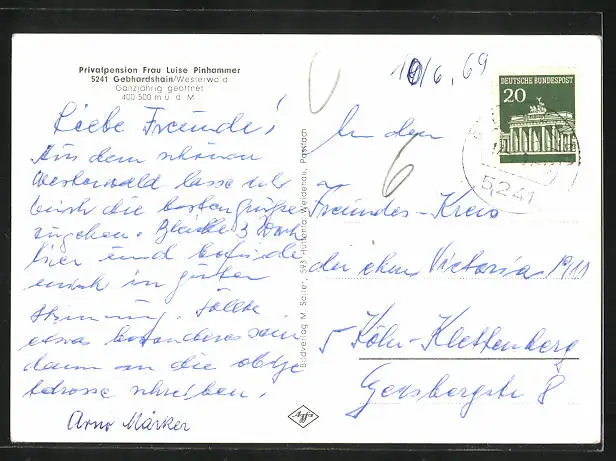 Privatpension Frau Luise Pinhammer
5241 Gebhardshain/Westerwald
Ganzjährig geöffnet
400-500 m ü. d. M.
Liebe Freunde!
Aus dem schönen
Westerwald lasse ich
euch die besten Grüße
zugehen. Bleibe 3 Woch
hier und befinde
mich in guter
Stimmung. Sollte
etwas besonderes sein
dann an die obige
Adresse schreiben.
Arno Märker
Bildverlag M. Seiter, 593 Hüttental-Weidenau, Postfach
Agfa
10/6.69
DEUTSCHE BUNDESPOST
20
5241
6
An den
Freundes-Kreis
der ehem. Victoria 1911
5 Köln-Klettenberg
Geisbergstr 8